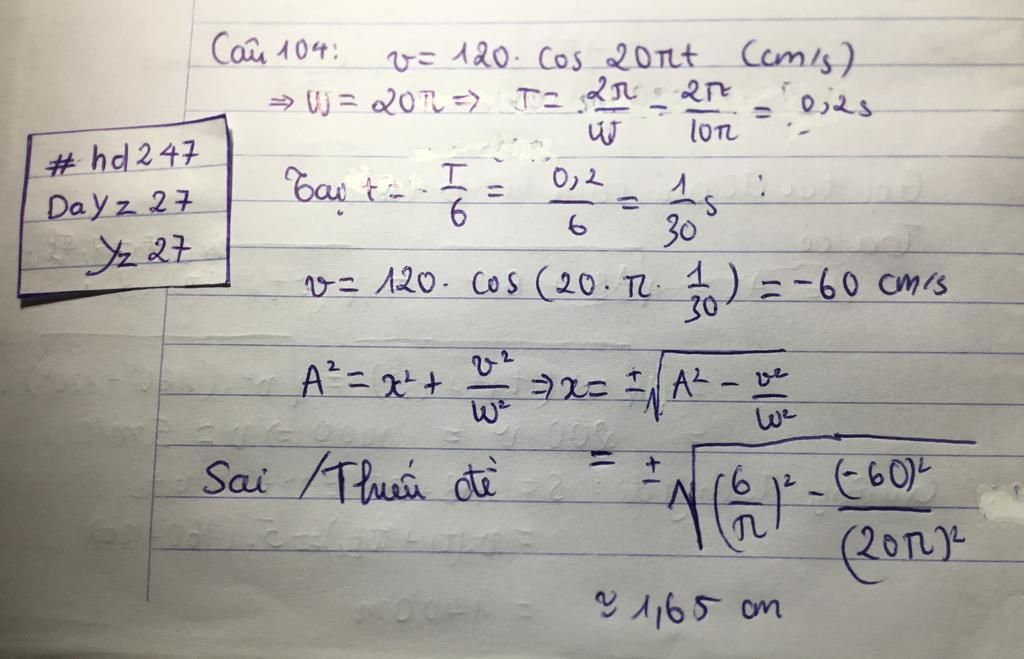 Câu 104: v = 120. cos 20πt (cm/s)
⇒ W = 20π ⇒ T = 2π/W = 2π/10π = 0,2s
# hd247
DaYz 27
Yz 27
Tại t = T/6 = 0,2/6 = 1/30 s :
v = 120. cos (20. π. 1/30) = -60 cm/s
A² = x² + v²/W² ⇒ x = ±√(A² - v²/W²)
Sai / Thiếu đề = ±√((6/π)² - (-60)²/(20π)²)
≈ 1,65 cm